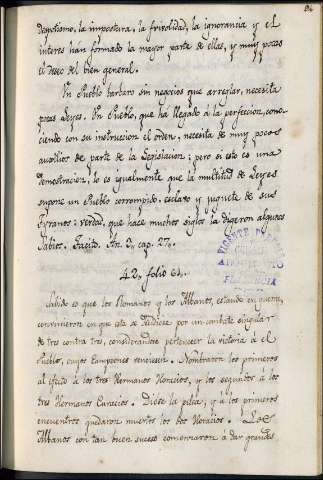 despotismo, la impostura, la frivolidad, la ignorancia y el
interes han formado la mayor parte de ellas, y muy pocos
el deseo del bien general.
Un Pueblo barbaro sin negocios que arreglar, necesita
pocas Leyes. Un Pueblo, que ha llegado á la perfeccion, cono-
ciendo con su instruccion el orden, necesita de muy pocos
auxilios de parte de la Legislacion; pero si esto es una
demostracion, lo es igualmente que la multitud de Leyes
supone un Pueblo corrompido, esclavo y juguete de sus
Tyranos: verdad, que hace muchos siglos la digeron algunos
Sabios. Tacito. An. 3, cap. 27.
42, folio 61.
Sabido es que los Romanos y los Albanos, estando en guerra,
convinieron en que esta se decidiese por un combate singular
de tres contra tres, considerandose pertenecer la victoria á el
Pueblo, cuyos Campeones venciesen. Nombraron los primeros
al efecto á los tres Hermanos Horacios, y los segundos á los
tres Hermanos Curacios. Diose la pelea, y á los primeros
encuentros quedaron muertos los dos Horacios. Los
Albanos con tan buen suceso comenzaron a dar grandes